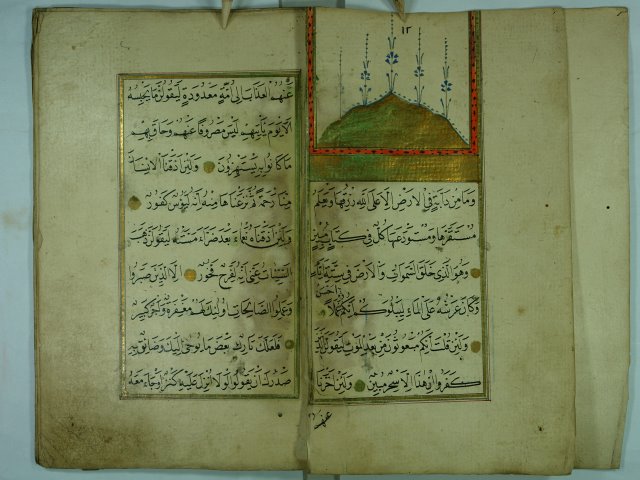 ١٢
وَمَا مِنْ دَابَّةٍ فِي الْاَرْضِ اِلَّا عَلَى اللّٰهِ رِزْقُهَا وَيَعْلَمُ
مُسْتَقَرَّهَا وَمُسْتَوْدَعَهَا كُلٌّ فِي كِتَابٍ مُبِينٍ
وَهُوَ الَّذِي خَلَقَ السَّمٰوَاتِ وَالْاَرْضَ فِي سِتَّةِ اَيَّامٍ
وَكَانَ عَرْشُهُ عَلَى الْمَاءِ لِيَبْلُوَكُمْ اَيُّكُمْ اَحْسَنُ عَمَلًا
وَلَئِنْ قُلْتَ اِنَّكُمْ مَبْعُوثُونَ مِنْ بَعْدِ الْمَوْتِ لَيَقُولَنَّ الَّذِينَ
كَفَرُوا اِنْ هٰذَا اِلَّا سِحْرٌ مُبِينٌ وَلَئِنْ اَخَّرْنَا
عنهم
عَنْهُمُ الْعَذَابَ اِلٰى اُمَّةٍ مَعْدُودَةٍ لَيَقُولُنَّ مَا يَحْبِسُهُ
اَلَا يَوْمَ يَأْتِيهِمْ لَيْسَ مَصْرُوفًا عَنْهُمْ وَحَاقَ بِهِمْ
مَا كَانُوا بِهِ يَسْتَهْزِؤُنَ وَلَئِنْ اَذَقْنَا الْاِنْسَانَ
مِنَّا رَحْمَةً ثُمَّ نَزَعْنَاهَا مِنْهُ اِنَّهُ لَيَؤُسٌ كَفُورٌ
وَلَئِنْ اَذَقْنَاهُ نَعْمَاءَ بَعْدَ ضَرَّاءَ مَسَّتْهُ لَيَقُولَنَّ ذَهَبَ
السَّيِّئَاتُ عَنِّي اِنَّهُ لَفَرِحٌ فَخُورٌ اِلَّا الَّذِينَ صَبَرُوا
وَعَمِلُوا الصَّالِحَاتِ اُولٰئِكَ لَهُمْ مَغْفِرَةٌ وَاَجْرٌ كَبِيرٌ
فَلَعَلَّكَ تَارِكٌ بَعْضَ مَا يُوحٰى اِلَيْكَ وَضَائِقٌ بِهِ
صَدْرُكَ اَنْ يَقُولُوا لَوْلَا اُنْزِلَ عَلَيْهِ كَنْزٌ اَوْ جَاءَ مَعَهُ